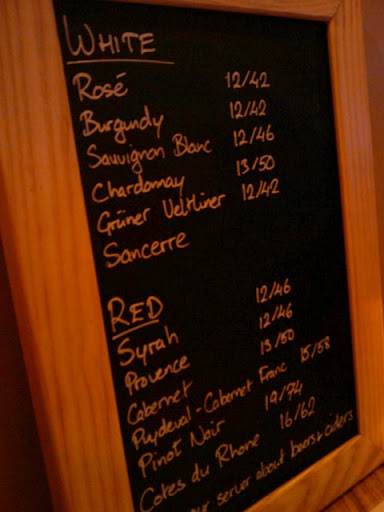 WHITE
Rosé 12/42
Burgundy 12/42
Sauvignon Blanc 12/46
Chardonnay 13/50
Grüner Veltliner 12/42
Sancerre
RED
Syrah 12/46
Provence 12/46
Cabernet 13/50
Puydeval-Cabernet Franc 15/58
Pinot Noir 19/74
Cotes du Rhone 16/62
server about beers & ciders